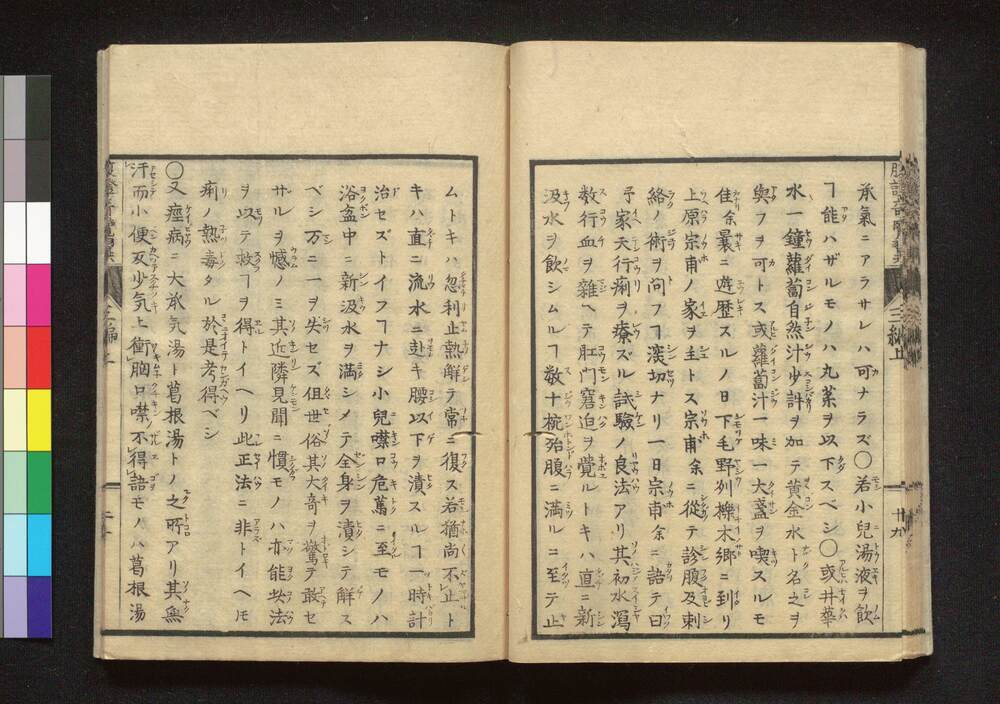 承氣ニアラサレハ可ナラズ〇若小兒湯液ヲ飲
ヿ能ハザルモノハ丸薬ヲ以下スベシ〇或井華
水一鐘蘿蔔自然汁少計ヲ加テ黄金水ト名之ヲ
與フヲ可トス或蘿蔔汁一味一大盞ヲ喫スルモ
佳余曩ニ遊歴スルノ日下毛野州櫟木郷ニ到リ
上原宗甫ノ家ヲ主トス宗甫余ニ從テ診腹及刺
絡ノ術ヲ問フヿ深切ナリ一日宗甫余ニ語テ曰
予家天行痢ヲ療ズル試験ノ良法アリ其初水瀉
数行血ヲ雜ヘテ肛門窘迫ヲ覺ルトキハ直ニ新
汲水ヲ飲シムルヿ数十椀殆腹ニ満ルニ至テ止
ムトキハ忽利止熱解テ常ニ復ス若猶尚不止ト
キハ直ニ流水ニ赴キ腰以下ヲ漬スルヿ一時計
治セズトイフヿナシ小兒噤口危篤ニ至モノハ
浴盆中ニ新汲水ヲ満シメテ全身ヲ漬シテ解ス
ベシ万ニ一ヲ失セズ俎世俗其大奇ヲ驚テ敢セ
サルヲ憾ノミ其近隣見聞ニ慣モノハ亦能此法
ヲ以テ救ヿヲ得トイヘリ此正法ニ非トイヘモ
痢ノ熱毒タル於是考得ベシ
〇又痙病ニ大承気湯ト葛根湯トノ之所アリ其無
汗而小便反少気上衝胸口噤不得語モノハ葛根湯
三編上
廿九